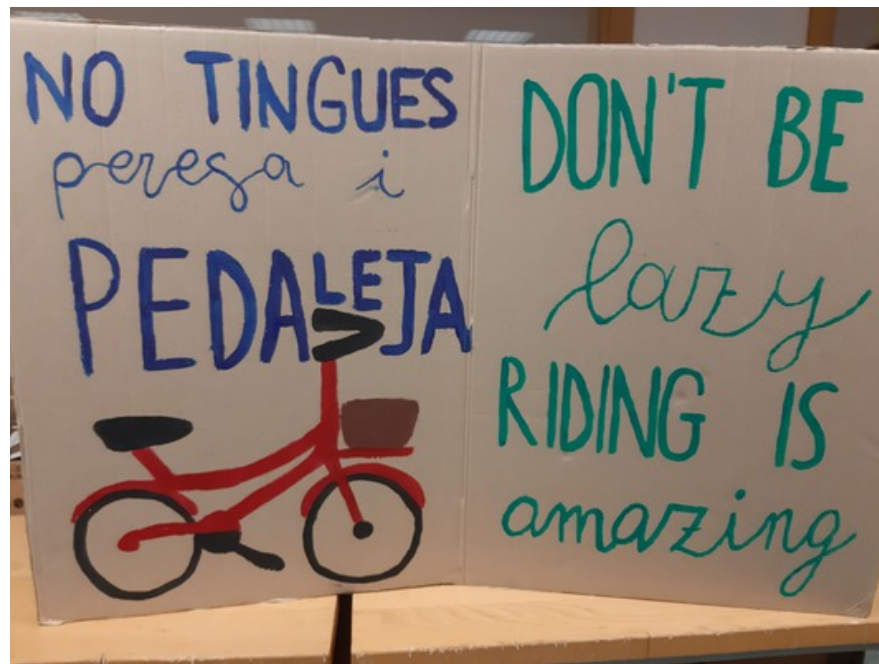 NO TINGUES
peresa i
PEDALEJA
DON'T BE
lazy
RIDING IS
amazing